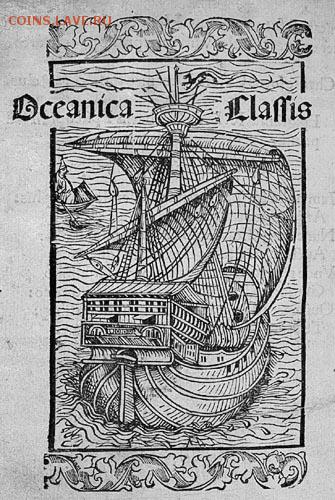 COINS.LAVE.RU
Oceanica Classis